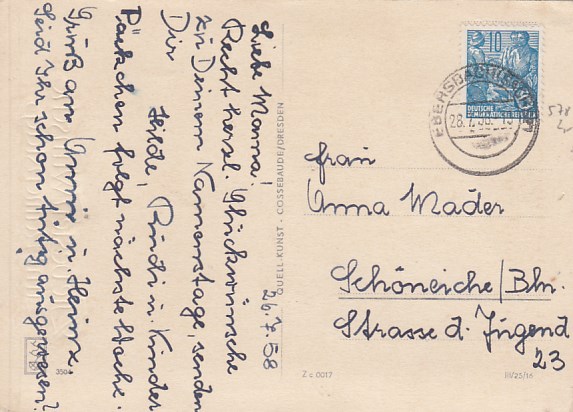 Liebe Mamma!
26.7.58
Recht herzl. Glückwünsche
zu Deinem Namenstage, senden
Dir Hilde, Rudi u. Kinder
Päckchen folgt nächste Woche.
Gruß an u. Heinz.
Seid Ihr schon tüchtig ausgewesen?
QUELL-KUNST · COSSEBAUDE/DRESDEN
3504
10
DEUTSCHE
DEMOKRATISCHE REPUBLIK
EBERSBACH
28.7.58
578
Frau
Anna Mader
Schöneiche/Bln.
Strasse d. Jugend
23
Z c 0017
III/25/16